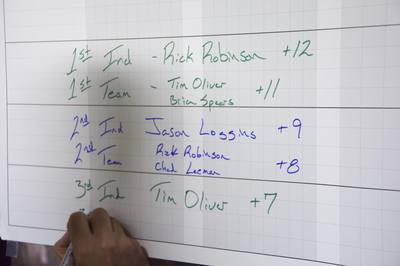 1st Ind - Rick Robinson +12
1st Team - Tim Oliver
Brian Spears +11
2nd Ind Jason Loggins +9
2nd Team Rick Robinson
Chad Leeman +8
3rd Ind Tim Oliver +7